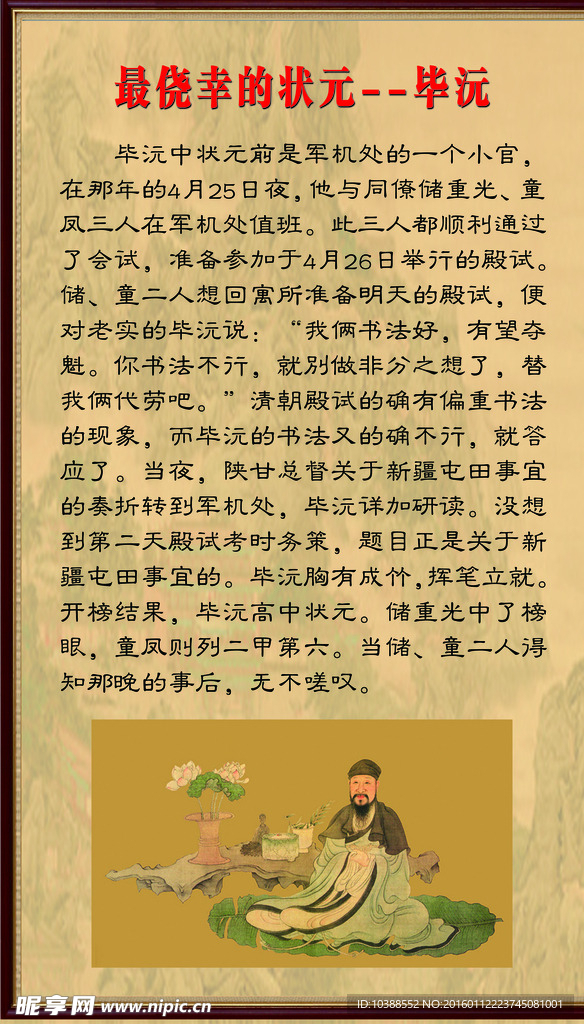 最侥幸的状元--毕沅
毕沅中状元前是军机处的一个小官，
在那年的4月25日夜，他与同僚储重光、童
凤三人在军机处值班。此三人都顺利通过
了会试，准备参加于4月26日举行的殿试。
储、童二人想回寓所准备明天的殿试，便
对老实的毕沅说：“我俩书法好，有望夺
魁。你书法不行，就别做非分之想了，替
我俩代劳吧。”清朝殿试的确有偏重书法
的现象，而毕沅的书法又的确不行，就答
应了。当夜，陕甘总督关于新疆屯田事宜
的奏折转到军机处，毕沅详加研读。没想
到第二天殿试考时务策，题目正是关于新
疆屯田事宜的。毕沅胸有成竹，挥笔立就。
开榜结果，毕沅高中状元。储重光中了榜
眼，童凤则列二甲第六。当储、童二人得
知那晚的事后，无不嗟叹。
昵享网 www.nipic.cn
ID:10388552 NO:20160112223745081001